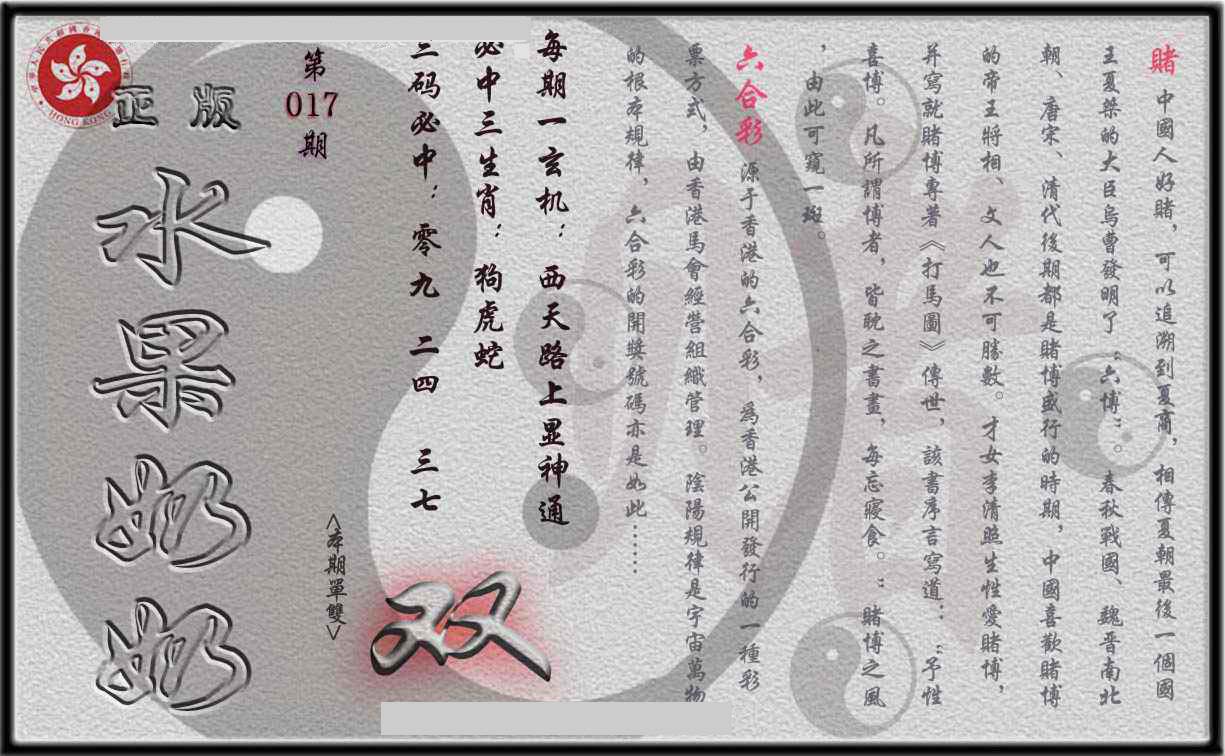 賭 中國人好賭，可以追溯到夏商，相傳夏朝最後一個國
王夏桀的大臣烏曹發明了“六博”。春秋戰國、魏晋南北
朝、唐宋、清代後期都是賭博盛行的時期，中國喜歡賭博
的帝王將相、文人也不可勝數。才女李清照生性愛賭博，
并寫就賭博專著《打馬圖》傳世，該書序言寫道：“予性
喜博。凡所謂博者，皆耽之書畫，每忘寢食。”賭博之風
，由此可窺一斑。
六合彩 源于香港的六合彩，為香港公開發行的一種彩
票方式，由香港馬會經營組織管理。陰陽規律是宇宙萬物
的根本規律，六合彩的開獎號碼亦是如此……
每期一玄机：西天路上显神通
必中三生肖：狗虎蛇
三码必中：零九 二四 三七
双
<本期單雙>
第
017
期
正版
水果奶奶
HONG KONG